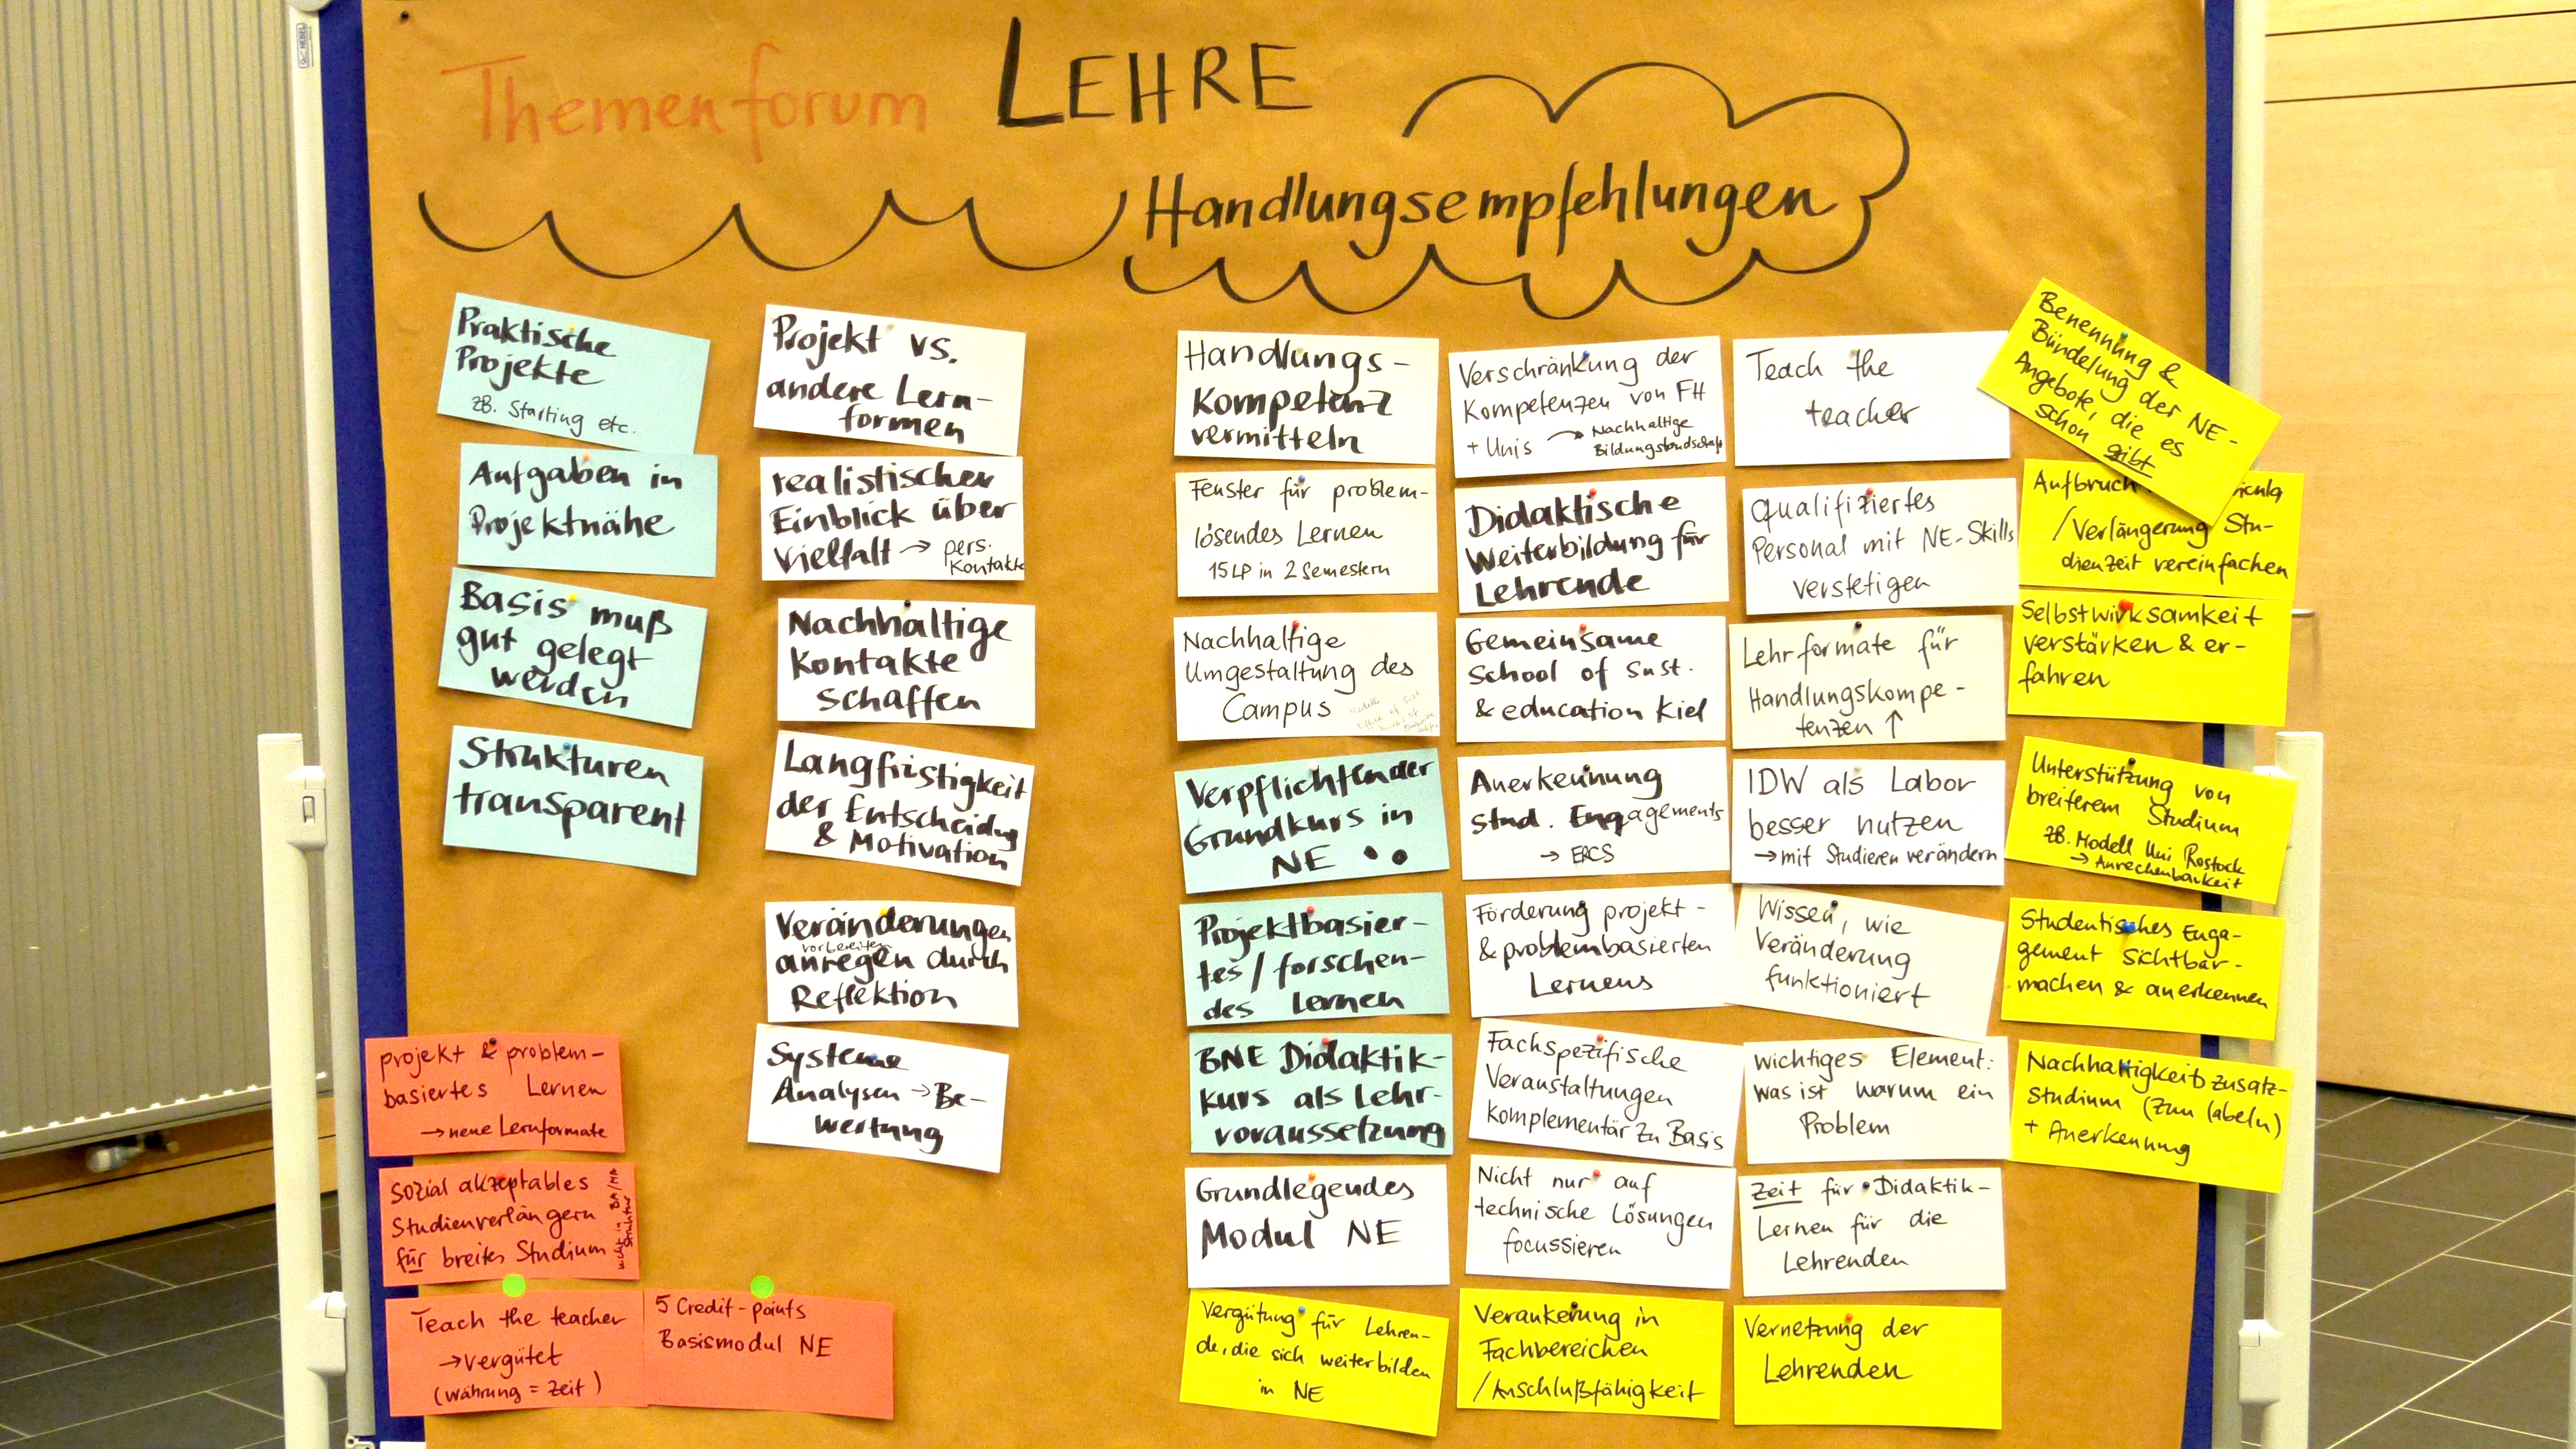 Themenforum LEHRE
Handlungsempfehlungen
Praktische
Projekte
zB. Starting etc.
Aufgaben in
Projektnähe
Basis muß
gut gelegt
werden
Strukturen
transparent
projekt & problem-
basiertes Lernen
→ neue Lernformate
sozial akzeptables
Studienverlängern
für breites Studium
nicht in BA/MA
Struktur
Teach the teacher
→ vergütet
(Währung = Zeit)
5 Credit-points
Basismodul NE
Projekt vs.
andere Lern-
formen
realistischer
Einblick über
Vielfalt → pers.
Kontakte
Nachhaltige
Kontakte
schaffen
Langfristigkeit
der Entscheidung
& Motivation
Veränderungen
vorbereiten
anregen durch
Reflektion
Systeme
Analysen → Be-
wertung
Handlungs-
kompetenz
vermitteln
Fenster für problem-
lösendes Lernen
15 LP in 2 Semestern
Nachhaltige
Umgestaltung des
Campus
Verpflichtender
Grundkurs in
NE
Projektbasier-
tes/forschen-
des Lernen
BNE Didaktik-
kurs als Lehr-
voraussetzung
Grundlegendes
Modul NE
Vergütung für Lehren-
de, die sich weiterbilden
in NE
Verschränkung der
Kompetenzen von FH
+ Unis → Nachhaltige
Bildungslandschaft
Didaktische
Weiterbildung für
Lehrende
Gemeinsame
School of Sust.
& education Kiel
Anerkennung
stud. Engagements
→ ERCS
Förderung projekt-
& problembasierten
Lernens
Fachspezifische
Veranstaltungen
komplementär zu Basis
Nicht nur auf
technische Lösungen
focussieren
Verankerung in
Fachbereichen
/Anschlußfähigkeit
Teach the
teacher
Qualifiziertes
Personal mit NE-Skills
verstetigen
Lehrformate für
Handlungskompe-
tenzen ↑
IDW als Labor
besser nutzen
→ mit Studieren verändern
Wissen, wie
Veränderung
funktioniert
wichtiges Element:
was ist warum ein
Problem
Zeit für Didaktik-
Lernen für die
Lehrenden
Vernetzung der
Lehrenden
Benennung &
Bündelung der NE-
Angebote, die es
schon gibt
Aufbruch
/Verlängerung Stu-
dienzeit vereinfachen
Selbstwirksamkeit
verstärken & er-
fahren
Unterstützung von
breiterem Studium
zB. Modell Uni Rostock
→ Anrechenbarkeit
Studentisches Enga-
gement sichtbar-
machen & anerkennen
Nachhaltigkeitszusatz-
studium (zum labeln)
+ Anerkennung